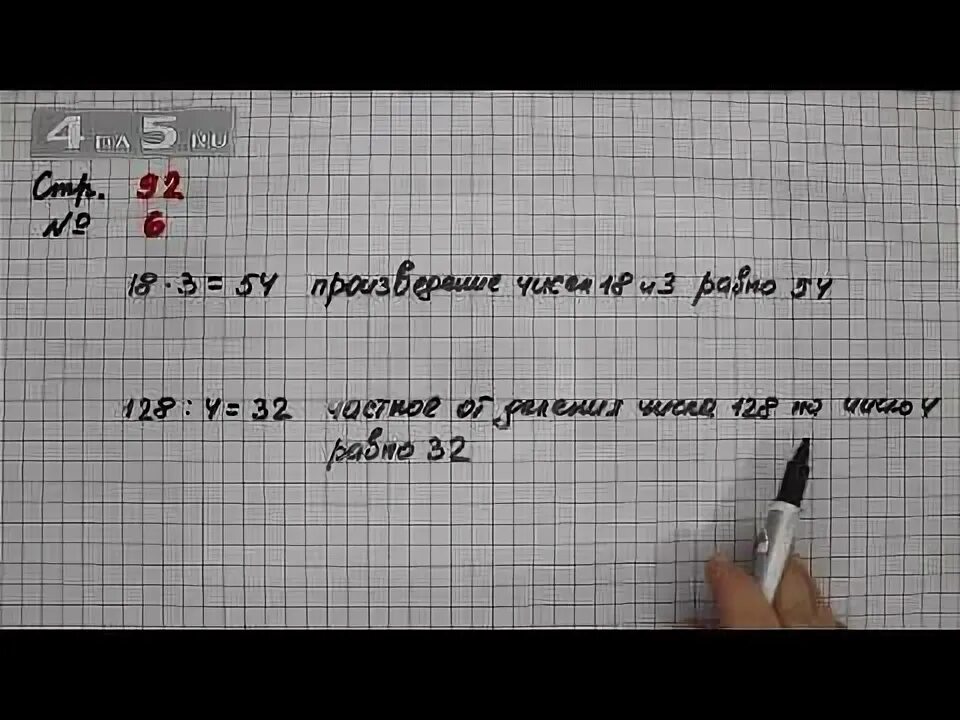 4 на 5.RU
Стр. 92
№ 6
18 · 3 = 54 произведение чисел 18 и 3 равно 54
128 : 4 = 32 частное от деления числа 128 на число 4
равно 32